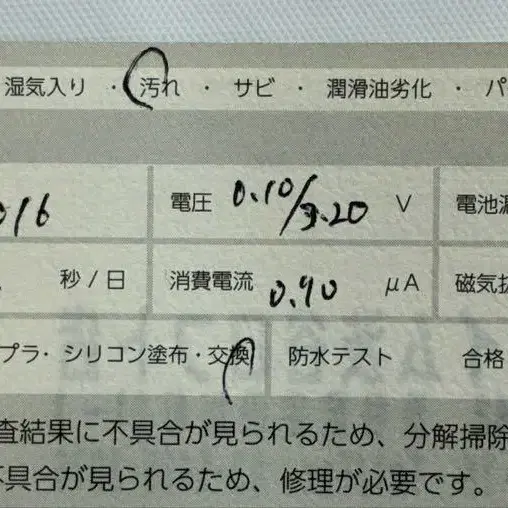 湿気入り ・ 汚れ ・ サビ ・ 潤滑油劣化 ・ パ
016 電圧 0.10/3.20 V 電池漏
秒/日 消費電流 0.90 μA 磁気抜
プラ・シリコン塗布・交換 防水テスト 合格
査結果に不具合が見られるため、分解掃除
不具合が見られるため、修理が必要です。